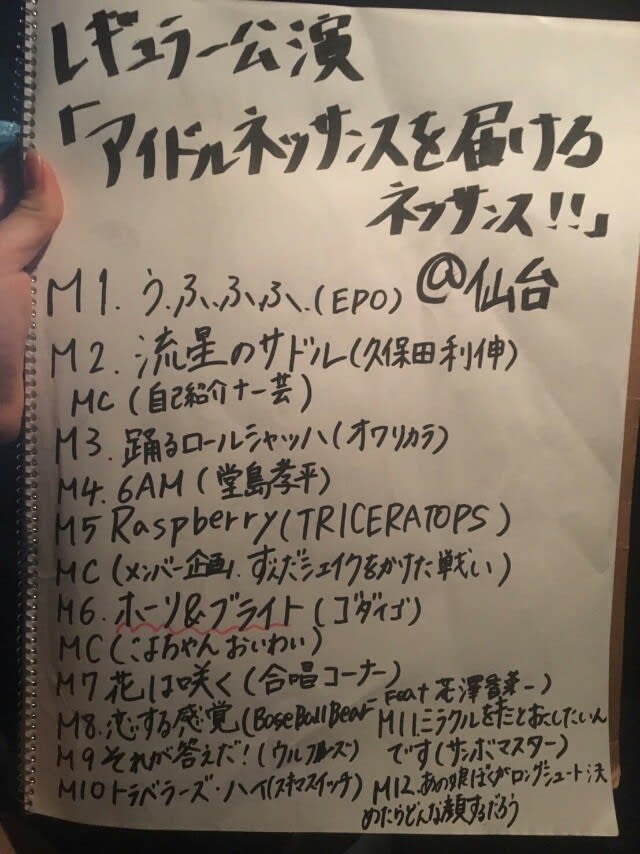 レギュラー公演
「アイドルネッサンスを届けろ
ネッサンス!!」
@仙台
M1.うふふふ.(EPO)
M2.流星のサドル(久保田利伸)
MC(自己紹介+一芸)
M3.踊るロールシャッハ(オワリカラ)
M4.6AM(堂島孝平)
M5 Raspberry(TRICERATOPS)
MC(メンバー企画.ずんだシェイクをかけた戦い)
M6.ホーリー&ブライト(ゴダイゴ)
MC(こよちゃんおいわい)
M7 花は咲く(合唱コーナー)
M8.恋する感覚(BaseBallBear
Feat 花澤香菜-)
M9それが答えだ!(ウルフルズ)
M10トラベラーズ・ハイ(スキマスイッチ)
M11.ミラクルをキミとおこしたいん
です(サンボマスター)
M12.あの娘ぼくがロングシュート決
めたらどんな顔するだろう